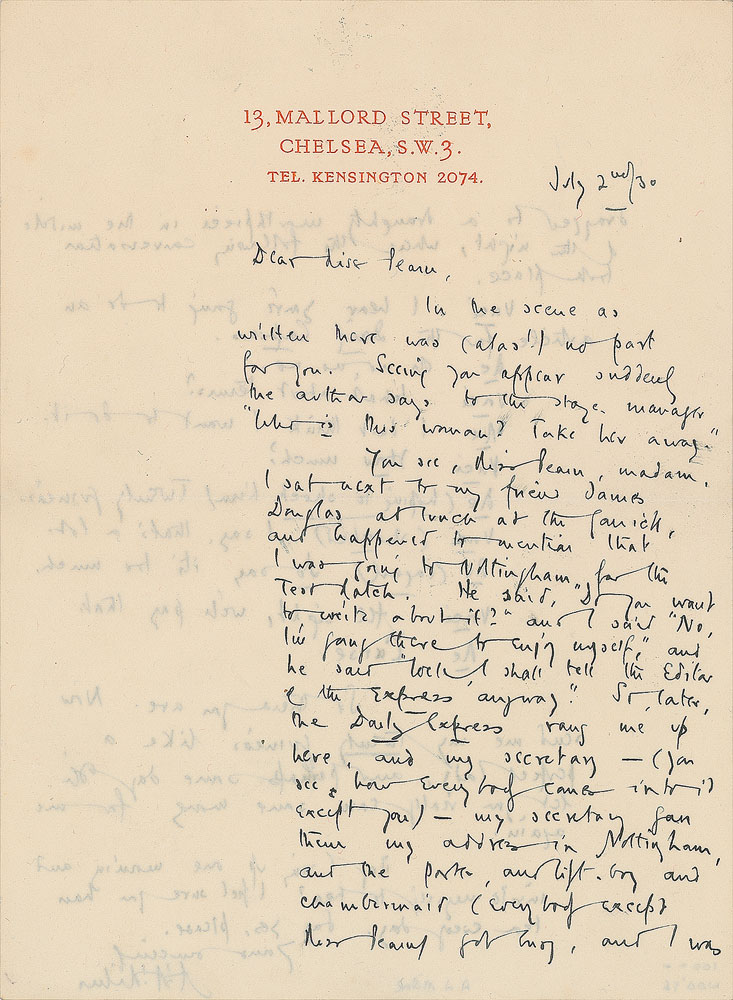 13, MALLORD STREET,
CHELSEA, S.W.3.
TEL. KENSINGTON 2074.
July 2nd/30
Dear Miss Pearn,
In the scene as
written there was (alas!) no part
for you. Seeing you appear suddenly
the author says to the stage-manager
"Who is this woman? Take her away."
You see, Miss Pearn, madam,
I sat next to my friend James
Douglas at lunch at the Garrick,
and happened to mention that
I was going to Nottingham for the
Test Match. He said, "Do you want
to write about it?" and I said "No,
I'm going there to enjoy myself," and
he said "Well I shall tell the Editor
of the Express anyway." So, later,
the Daily Express rang me up
here, and my secretary — (you
see, how everybody comes into it
except you) — my secretary gave
them my address in Nottingham,
and the porter, and lift-boy and
chambermaid (everybody except
Miss Pearn) got busy, and I was